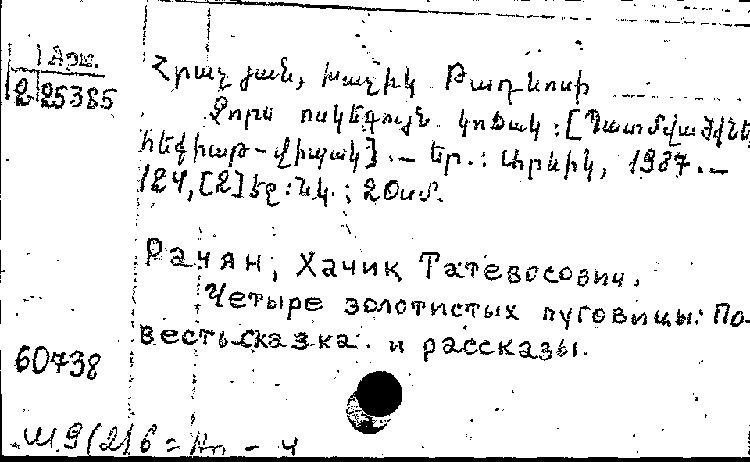 1 Арм.
2 25385
Հրաչյան, Խաչիկ Թադևոսի
Չորս ոսկեգույն կոճակ : [Պատմվածքներ,
հեքիաթ-վիպակ]. — Եր. : Արևիկ, 1987. —
124, [2] էջ : նկ. ; 20սմ.
Рачян, Хачик Татевосович.
Четыре золотистых пуговицы: По-
весть-сказка и рассказы.
60738